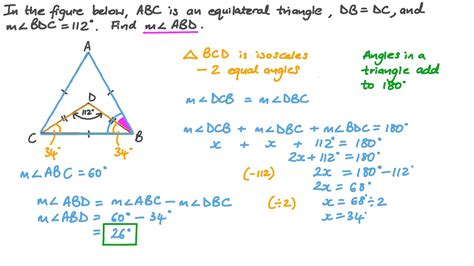 In the figure below, ABC is an equilateral triangle, DB = DC, and
m∠BDC = 112°. Find m∠ABD.
A
D
112°
C
B
34°
34°
△ BCD is isosceles
- 2 equal angles
Angles in a
triangle add
to 180°
m∠DCB = m∠DBC
m∠DCB + m∠DBC + m∠BDC = 180°
x + x + 112° = 180°
2x + 112° = 180°
(-112) 2x = 180° - 112°
2x = 68°
(÷2) x = 68° ÷ 2
x = 34°
m∠ABC = 60°
m∠ABD = m∠ABC - m∠DBC
m∠ABD = 60° - 34°
= 26°